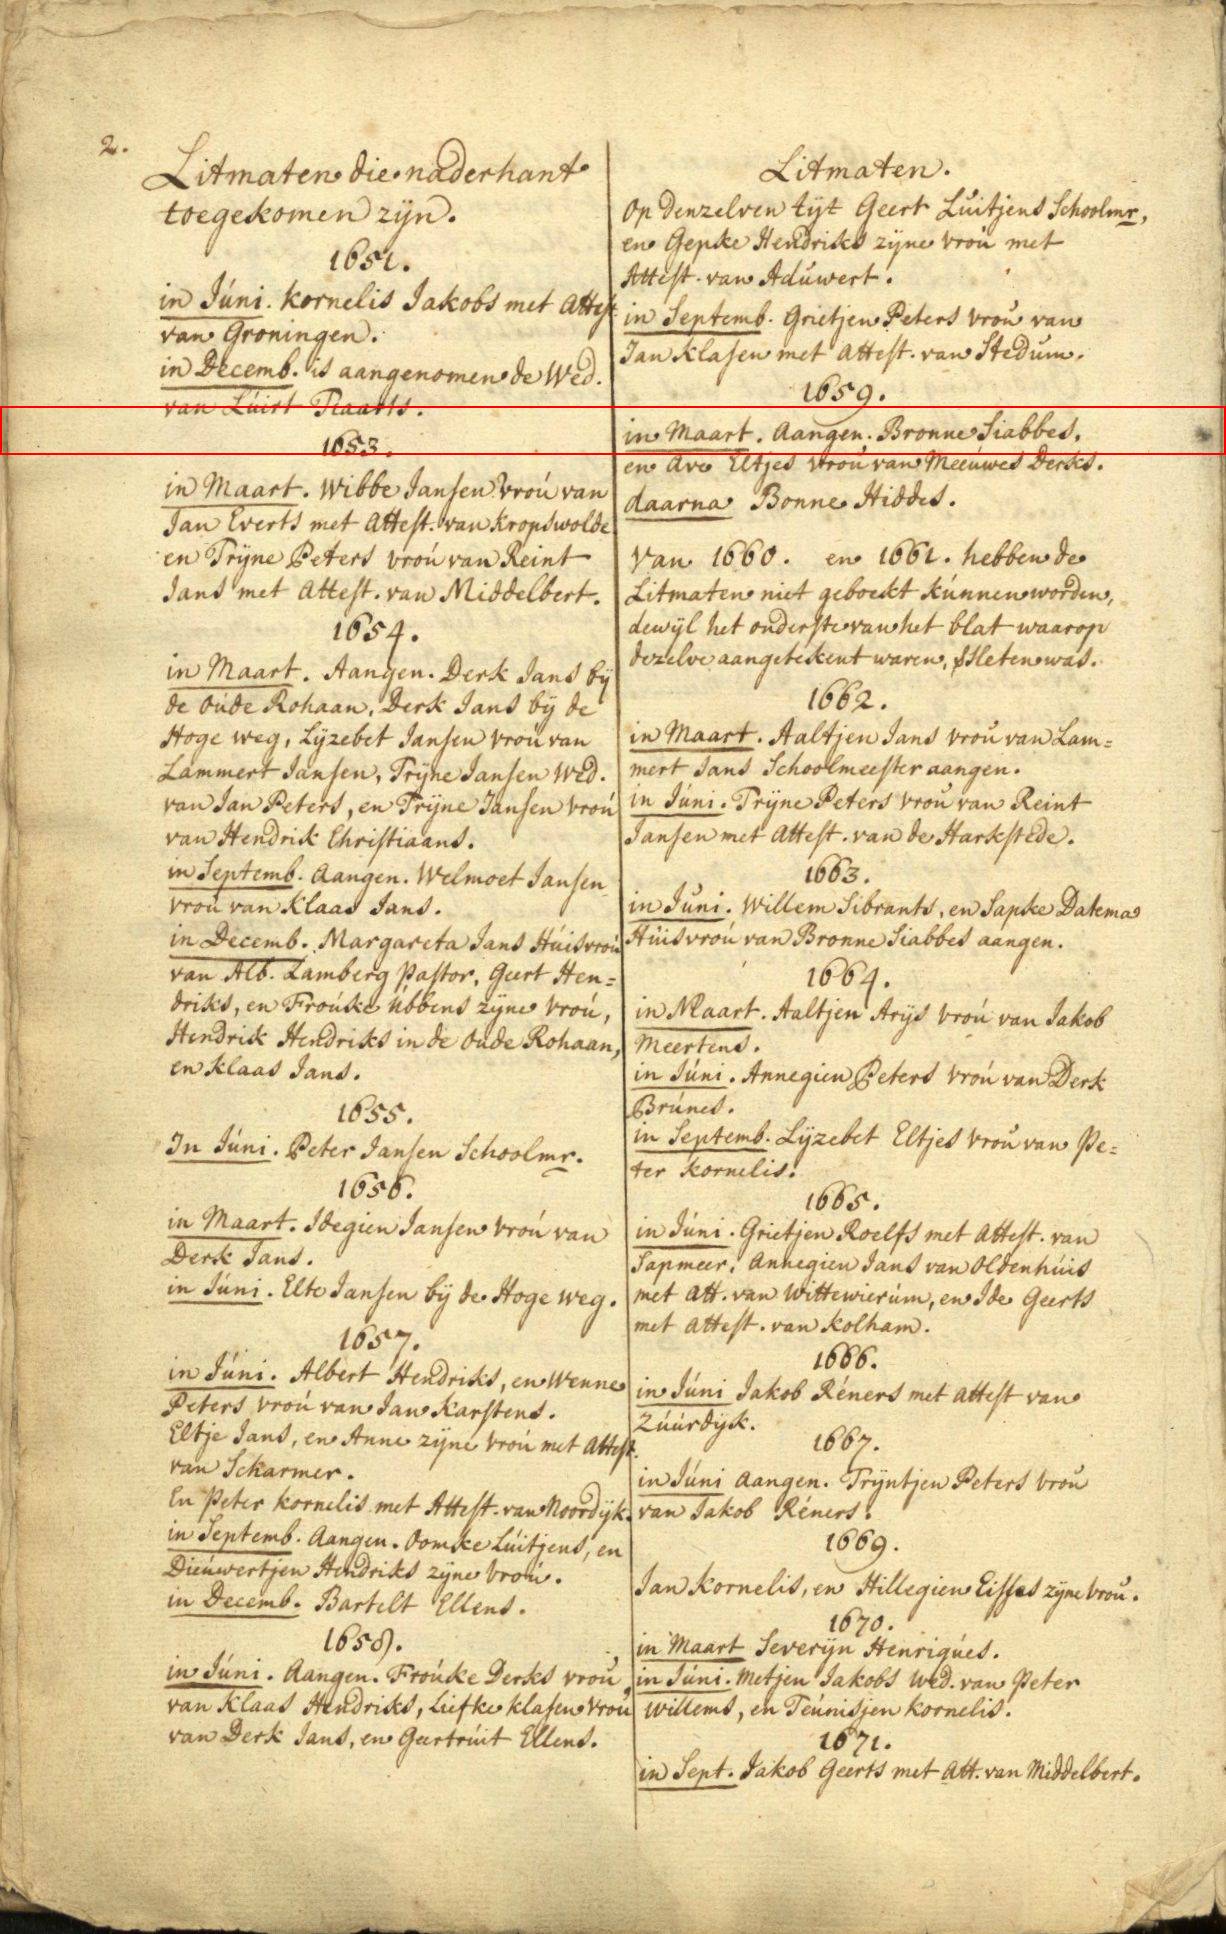 2.
Litmaten die naderhant
toegekomen zijn.
1651.
in Júni. Kornelis Jakobs met Attest
van Groningen.
in Decemb. is aangenomen de Wed.
van Lúirt Tiaarts.
1653.
in Maart. Wibbe Jansen vroú van
Jan Everts met Attest. van Kropswolde
en Trijne Peters vroú van Reint
Jans met Attest. van Middelbert.
1654.
in Maart. Aangen. Derk Jans bij
de oude Rohaan, Derk Jans bij de
Hoge weg, Lijzebet Jansen vroú van
Lammert Jansen, Trijne Jansen Wed.
van Jan Peters, en Trijne Jansen vroú
van Hendrik Christiaans.
in Septemb. Aangen. Welmoet Jansen
vroú van Klaas Jans.
in Decemb. Margareta Jans Húisvroú
van Alb. Lamberg Pastor, Geert Hen=
driks, en Froúke Úbbens zijne vroú,
Hendrik Hendriks in de oude Rohaan,
en Klaas Jans.
1655.
In Júni. Peter Jansen Schoolmr.
1656.
in Maart. Idegien Jansen vroú van
Derk Jans.
in Júni. Elte Jansen bij de Hoge weg.
1657.
in Júni. Albert Hendriks, en Wenne
Peters vroú van Jan Karstens.
Eltje Jans, en Anne zijne vroú met Attest.
van Scharmer.
En Peter Kornelis met Attest. van Noordijk.
in Septemb. Aangen. Oomke Lúitjens, en
Dieúwertjen Hendriks zijne vroú.
in Decemb. Bartelt Ellens.
1658.
in Júni. Aangen. Froúke Derks vroú
van Klaas Hendriks, Liefke Klasen vroú
van Derk Jans, en Geertrúit Ellens.
Litmaten.
Op denzelven tijt Geert Lúitjens Schoolmr,
en Gepke Hendriks zijne vroú met
Attest. van Adúwert.
in Septemb. Grietjen Peters vroú van
Jan Klasen met Attest. van Stedum.
1659.
in Maart. Aangen. Bronne Siabbes,
en Ave Eltjes vroú van Meeúwes Derks.
daarna Bonne Hiddes.
Van 1660. en 1661. hebben de
Litmaten niet geboekt kúnnen worden,
dewijl het onderste van het blat waarop
dezelve aangetekent waren, sleten was.
1662.
in Maart. Aaltjen Jans vroú van Lam=
mert Jans Schoolmeester aangen.
in Júni. Trijne Peters vroú van Reint
Jansen met Attest. van de Harkstede.
1663.
in Júni. Willem Sibrants, en Sapke Datema
Húisvroú van Bronne Siabbes aangen.
1664.
in Maart. Aaltjen Arijs vroú van Jakob
Meertens.
in Júni. Annegien Peters vroú van Derk
Brúnes.
in Septemb. Lijzebet Eltjes vroú van Pe=
ter Kornelis.
1665.
in Júni. Grietjen Roelfs met Attest. van
Sapmeer, Annegien Jans van Oldenhúis
met Att. van Wittewierúm, en Ide Geerts
met Attest. van Kolham.
1666.
in Júni Jakob Réners met Attest van
Zúúrdijk.
1667.
in Júni Aangen. Trijntjen Peters vroú
van Jakob Réners.
1669.
Jan Kornelis, en Hillegien Eisses zijne vroú.
1670.
in Maart Severijn Henriqúes.
in Júni. Metjen Jakobs Wed. van Peter
Willems, en Teúnisjen Kornelis.
1671.
in Sept. Jakob Geerts met Att. van Middelbert.